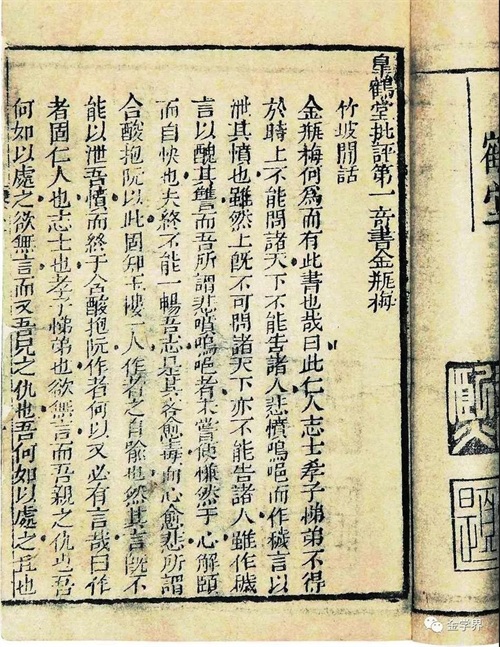 皐鶴堂批評第一竒書金瓶梅
竹坡閒話
金瓶梅何為而有此書也哉曰此仁人志士孝子悌弟不得
於時上不能問諸天下不能告諸人悲憤嗚唈而作穢言以
泄其憤也雖然上旣不可問諸天下亦不能告諸人雖作穢
言以醜其讐而吾所謂悲憤嗚唈者未嘗使慊然于心解頤
而自快也夫終不能一暢吾志是其言愈毒而心愈悲所謂
含酸抱阮以此固知玉樓一人作者之自喻也然其言旣不
能以泄吾憤而終于含酸抱阮作者何以又必有言哉曰作
者固仁人也志士也孝子悌弟也欲無言而吾親之仇也吾
何如以處之欲無言而又吾兄之仇也吾何如以處之且也
金学界